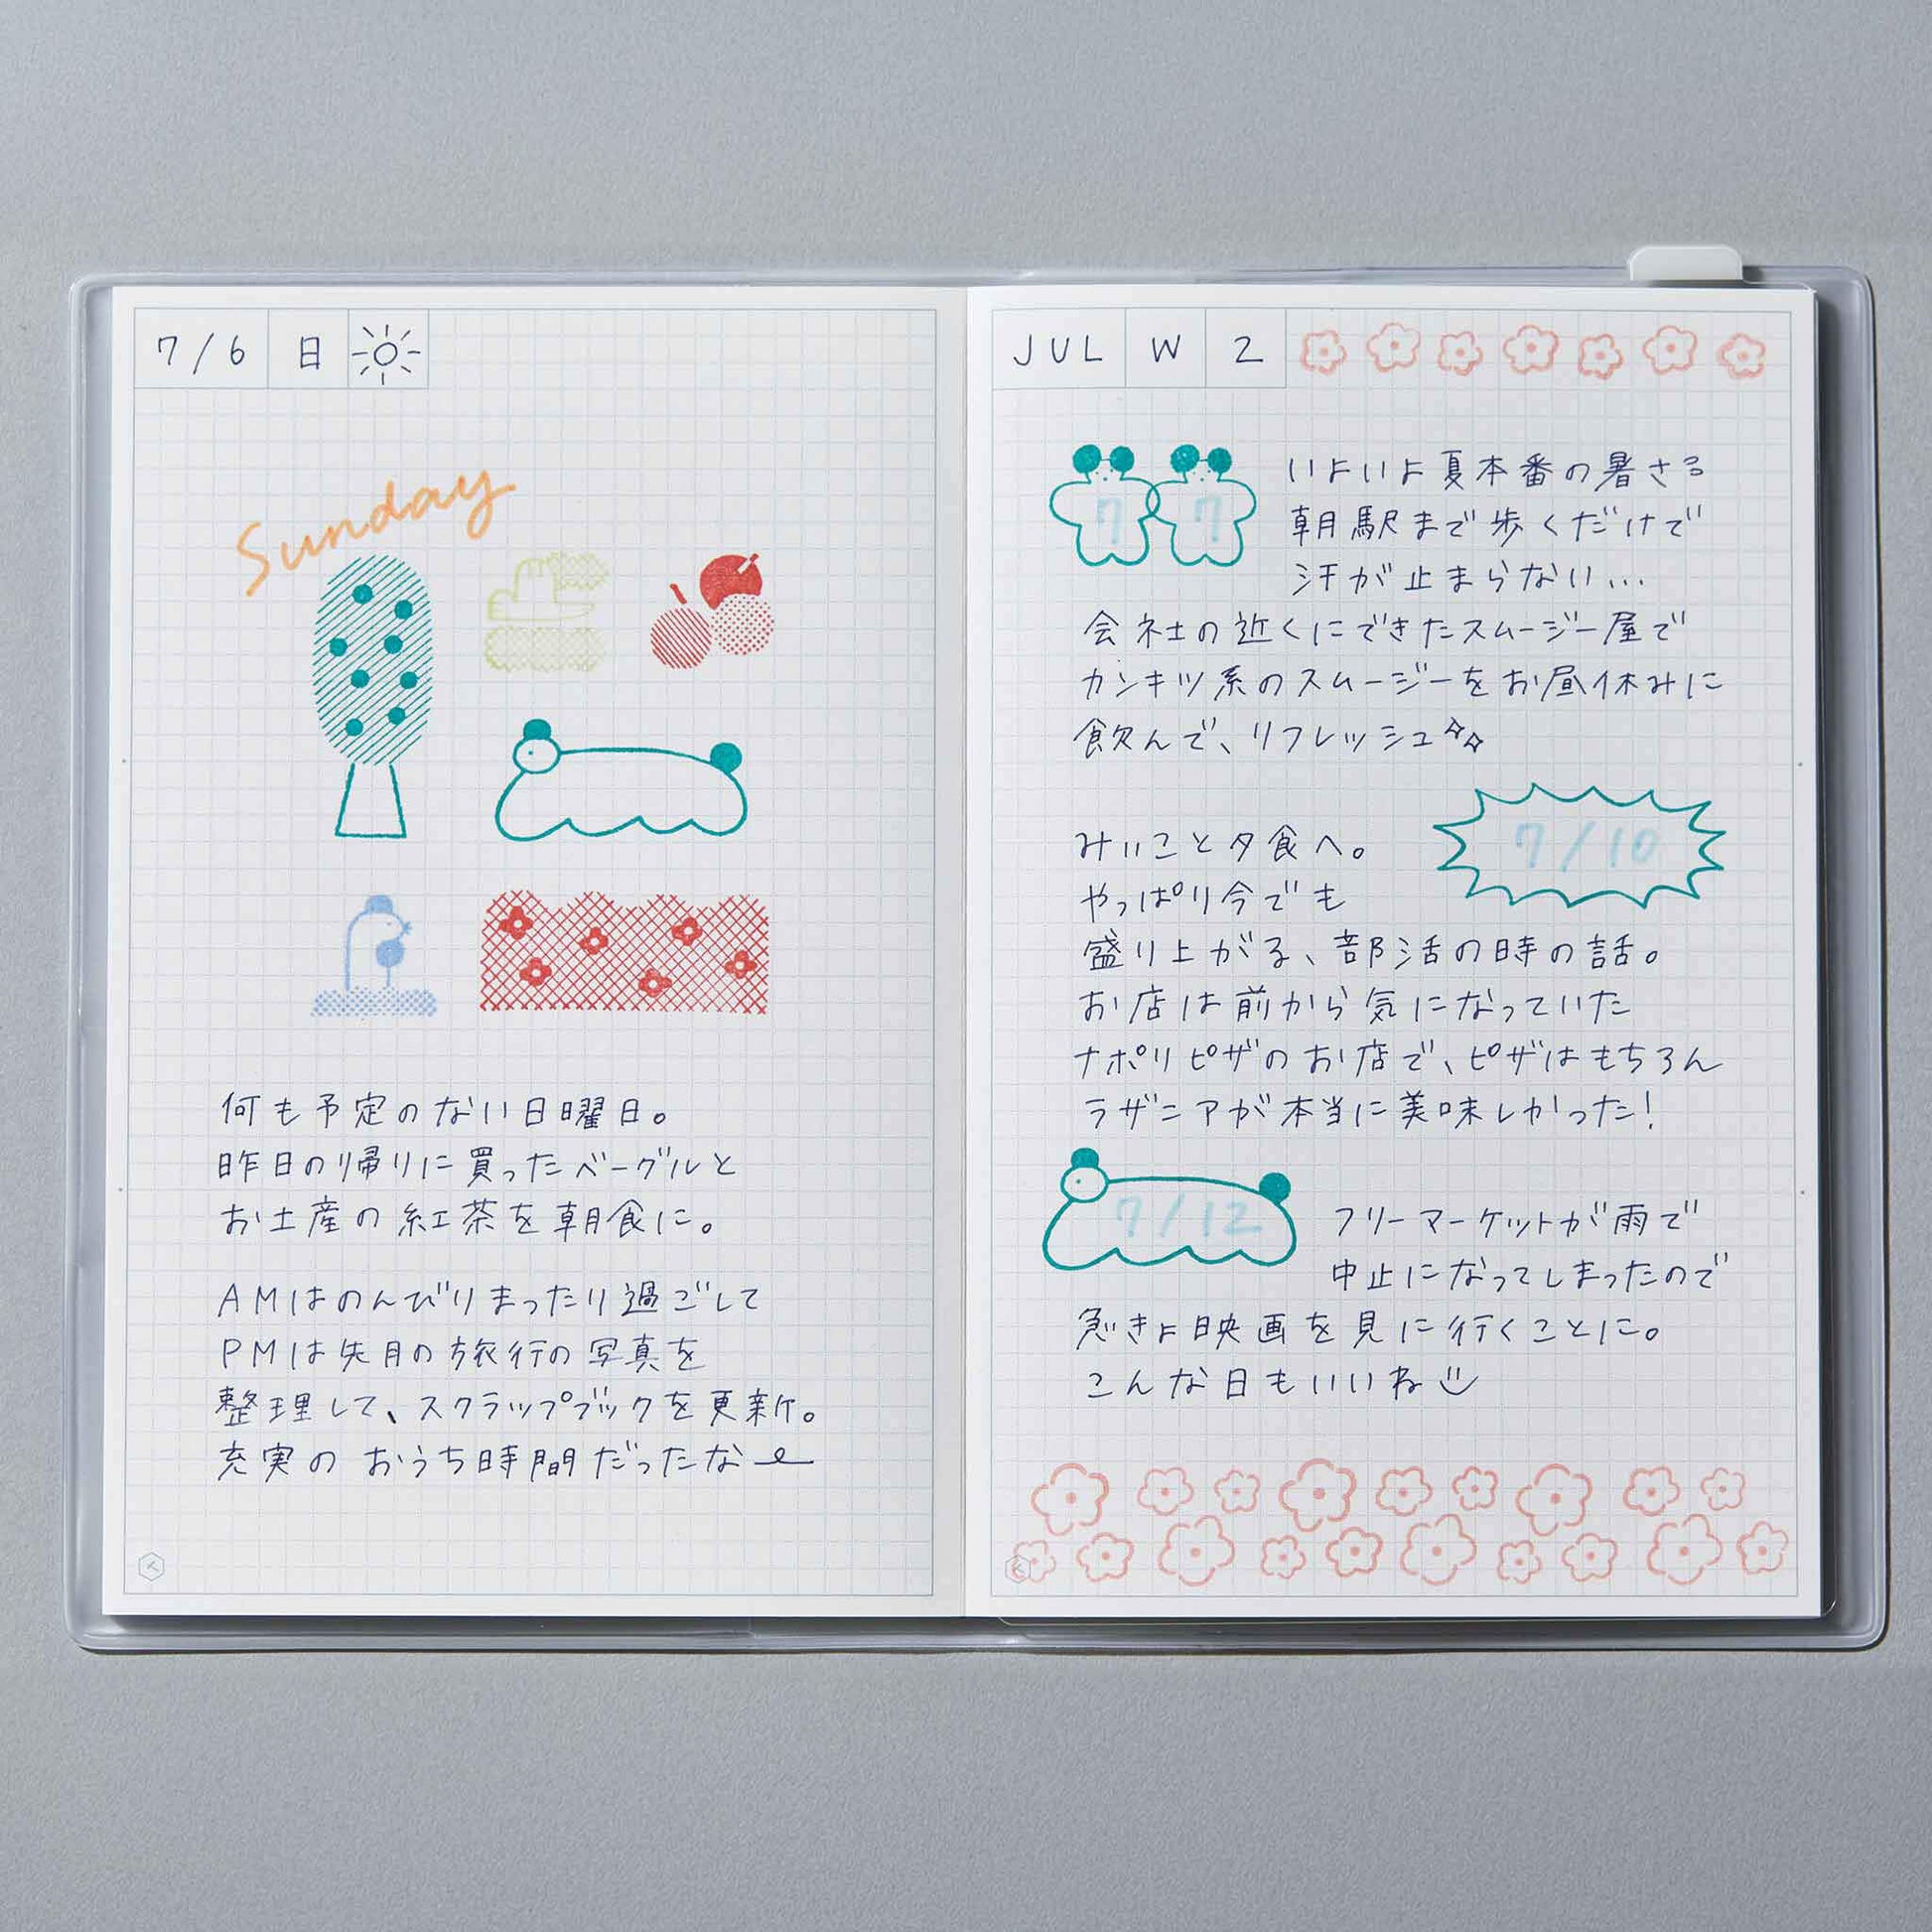 7/6 日
Sunday
何も予定のない日曜日。
昨日の帰りに買ったベーグルと
お土産の紅茶を朝食に。
AMはのんびりまったり過ごして
PMは先月の旅行の写真を
整理して、スクラップブックを更新。
充実のおうち時間だったなー
JUL W 2
7 7
いよいよ夏本番の暑さ
朝駅まで歩くだけで
汗が止まらない...
会社の近くにできたスムージー屋で
カンキツ系のスムージーをお昼休みに
飲んで、リフレッシュ
7/10
みいこと夕食へ。
やっぱり今でも
盛り上がる、部活の時の話。
お店は前から気になっていた
ナポリピザのお店で、ピザはもちろん
ラザニアが本当に美味しかった!
7/12
フリーマーケットが雨で
中止になってしまったので
急きょ映画を見に行くことに。
こんな日もいいね